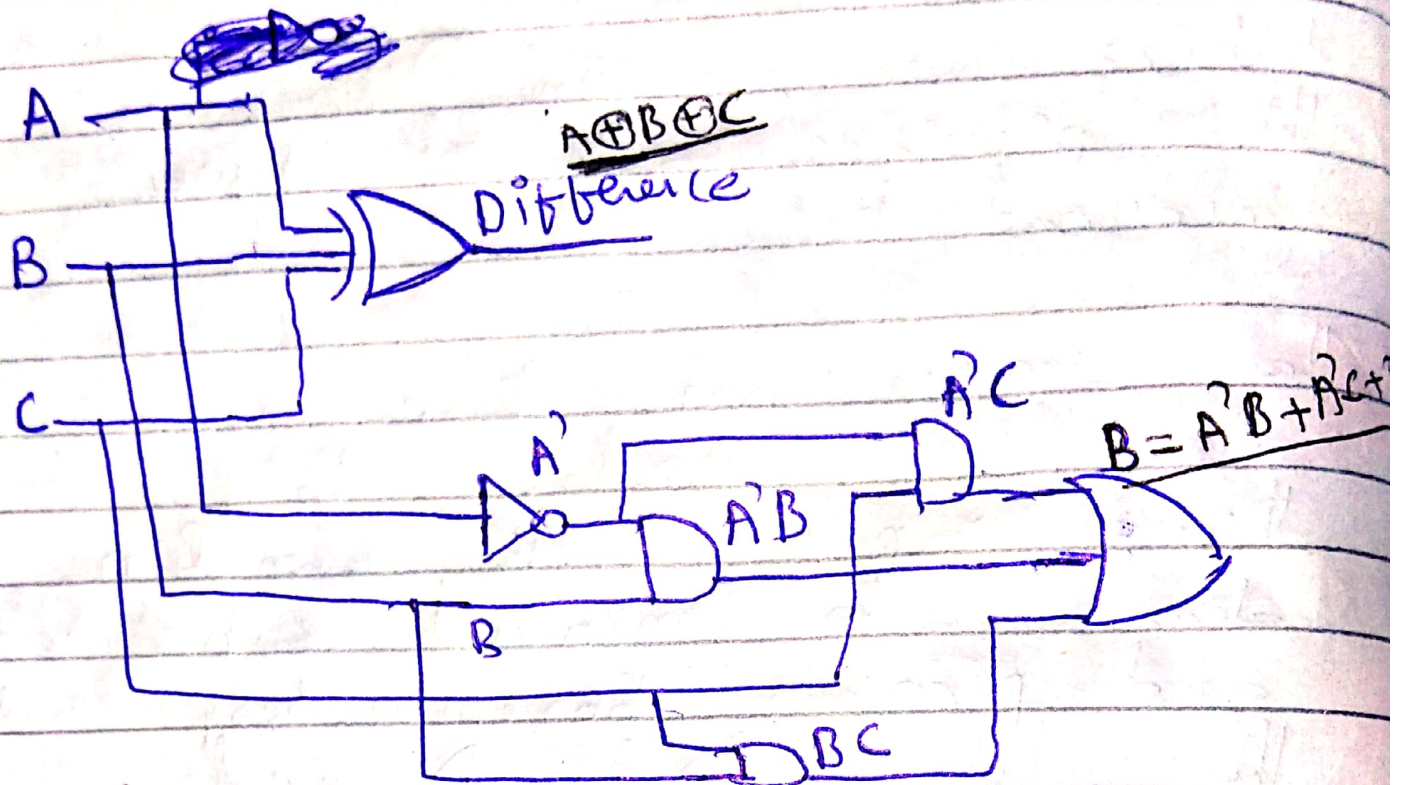 A
A⊕B⊕C
Difference
B
C
A'
A'C
B = A'B + A'C +
A'B
B
BC